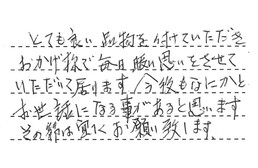 とても良い品物を付けていただき
おかげ様で毎日暖い思いをさせて
いただいて居ります 今後もなにかと
お世話になる事があると思います
その節は宜しくお願い致します。